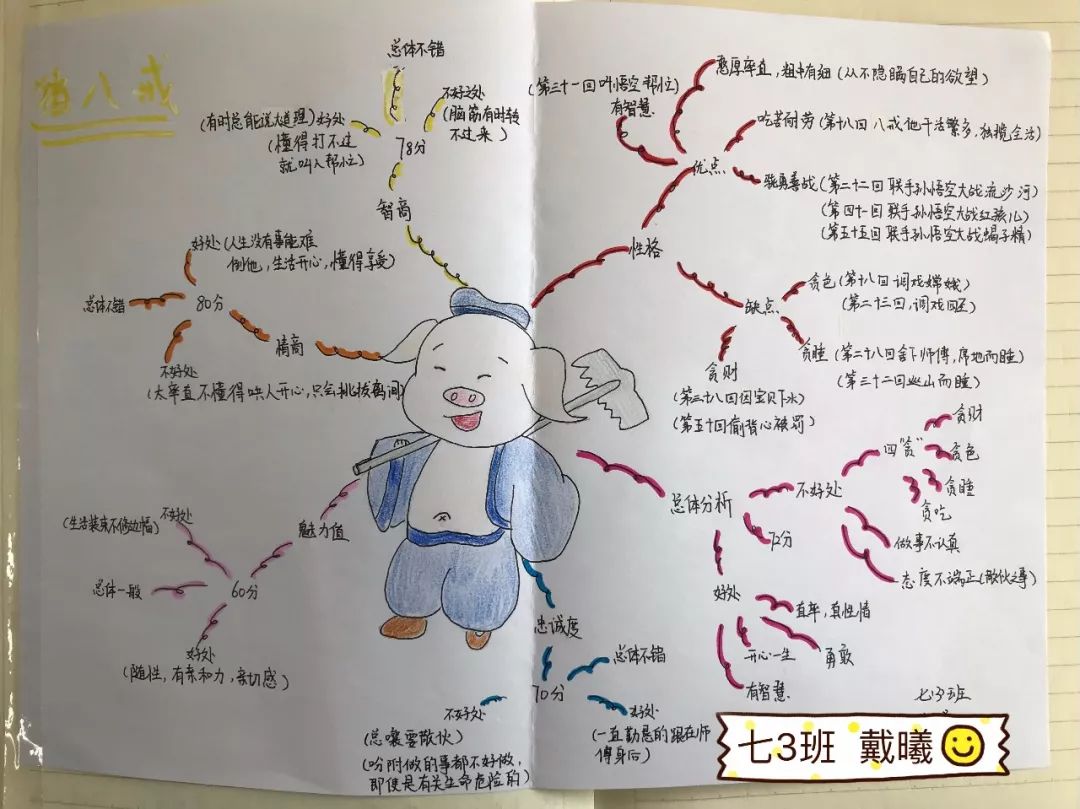 猪八戒
总体不错
不好处
(脑筋有时转
不过来)
(有时总能说大道理)好处
(懂得打不过
就叫人帮忙)
78分
智商
好处(人生没有事能难
倒他,生活开心,懂得享受)
总体不错
80分
情商
不好处
(太率直不懂得哄人开心,只会挑拨离间)
不好处
(生活装束不修边幅)
魅力值
总体一般
60分
好处
(随性,有亲和力,亲切感)
忠诚度
总体不错
70分
不好处
(总嚷要散伙)
(吩咐做的事都不好做,
即便是有关生命危险的)
好处
(一直勤恳的跟在师
傅身后)
(第三十一回叫悟空帮忙)
有智慧
憨厚率直,粗中有细(从不隐瞒自己的欲望)
吃苦耐劳(第十八回 八戒他干活繁多,独揽全活)
优点
骁勇善战(第二十二回 联手孙悟空大战流沙河)
(第四十一回 联手孙悟空大战红孩儿)
(第五十五回联手孙悟空大战蝎子精)
性格
缺点
贪色(第十八回 调戏嫦娥)
(第二十三回,调戏国王)
贪睡(第二十八回舍下师傅,席地而睡)
(第三十二回巡山而睡)
贪财
(第三十八回因宝贝下水)
(第五十回偷背心被罚)
总体分析
不好处
四“贪”
贪财
贪色
贪睡
贪吃
做事不认真
态度不端正(散伙之事)
72分
好处
直率,真性情
勇敢
开心一生
有智慧
七3班
七3班 戴曦